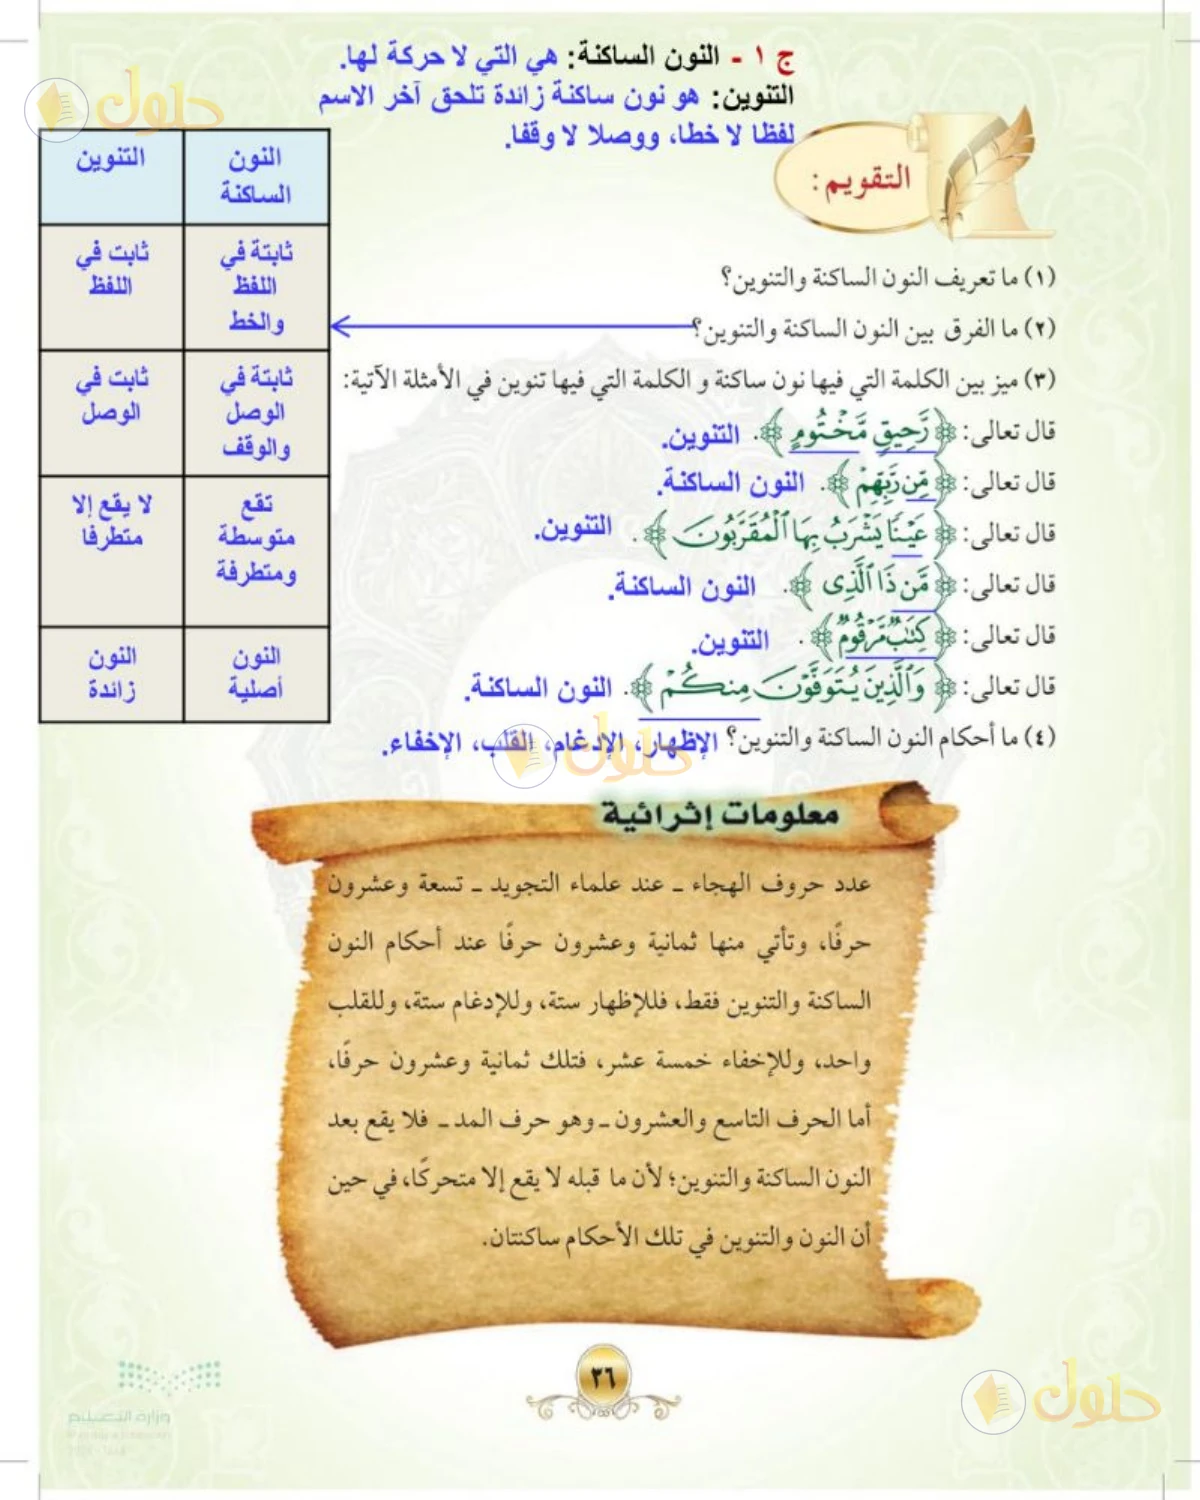 ج ١ - النون الساكنة: هي التي لا حركة لها.
التنوين: هو نون ساكنة زائدة تلحق آخر الاسم
لفظا لا خطا، ووصلا لا وقفا.
حلول
التقويم:
النون الساكنة
التنوين
ثابتة في اللفظ والخط
ثابت في اللفظ
ثابتة في الوصل والوقف
ثابت في الوصل
تقع متوسطة ومتطرفة
لا يقع إلا متطرفا
النون أصلية
النون زائدة
(١) ما تعريف النون الساكنة والتنوين؟
(٢) ما الفرق بين النون الساكنة والتنوين؟
(٣) ميز بين الكلمة التي فيها نون ساكنة و الكلمة التي فيها تنوين في الأمثلة الآتية:
قال تعالى: ﴿رَّحِيقٍ مَّخْتُومٍ﴾. التنوين.
قال تعالى: ﴿مِّن رَّبِّهِمْ﴾. النون الساكنة.
قال تعالى: ﴿عَيْنًا يَشْرَبُ بِهَا ٱلْمُقَرَّبُونَ﴾. التنوين.
قال تعالى: ﴿مَّن ذَا ٱلَّذِى﴾. النون الساكنة.
قال تعالى: ﴿كِتَٰبٌ مَّرْقُومٌ﴾. التنوين.
قال تعالى: ﴿وَٱلَّذِينَ يُتَوَفَّوْنَ مِنكُمْ﴾. النون الساكنة.
(٤) ما أحكام النون الساكنة والتنوين؟ الإظهار، الإدغام، القلب، الإخفاء.
حلول
معلومات إثرائية
عدد حروف الهجاء ـ عند علماء التجويد ـ تسعة وعشرون
حرفًا، وتأتي منها ثمانية وعشرون حرفًا عند أحكام النون
الساكنة والتنوين فقط، فللإظهار ستة، وللإدغام ستة، وللقلب
واحد، وللإخفاء خمسة عشر، فتلك ثمانية وعشرون حرفًا،
أما الحرف التاسع والعشرون ـ وهو حرف المد ـ فلا يقع بعد
النون الساكنة والتنوين؛ لأن ما قبله لا يقع إلا متحركًا، في حين
أن النون والتنوين في تلك الأحكام ساكنتان.
٣٦
وزارة التعليم
حلول